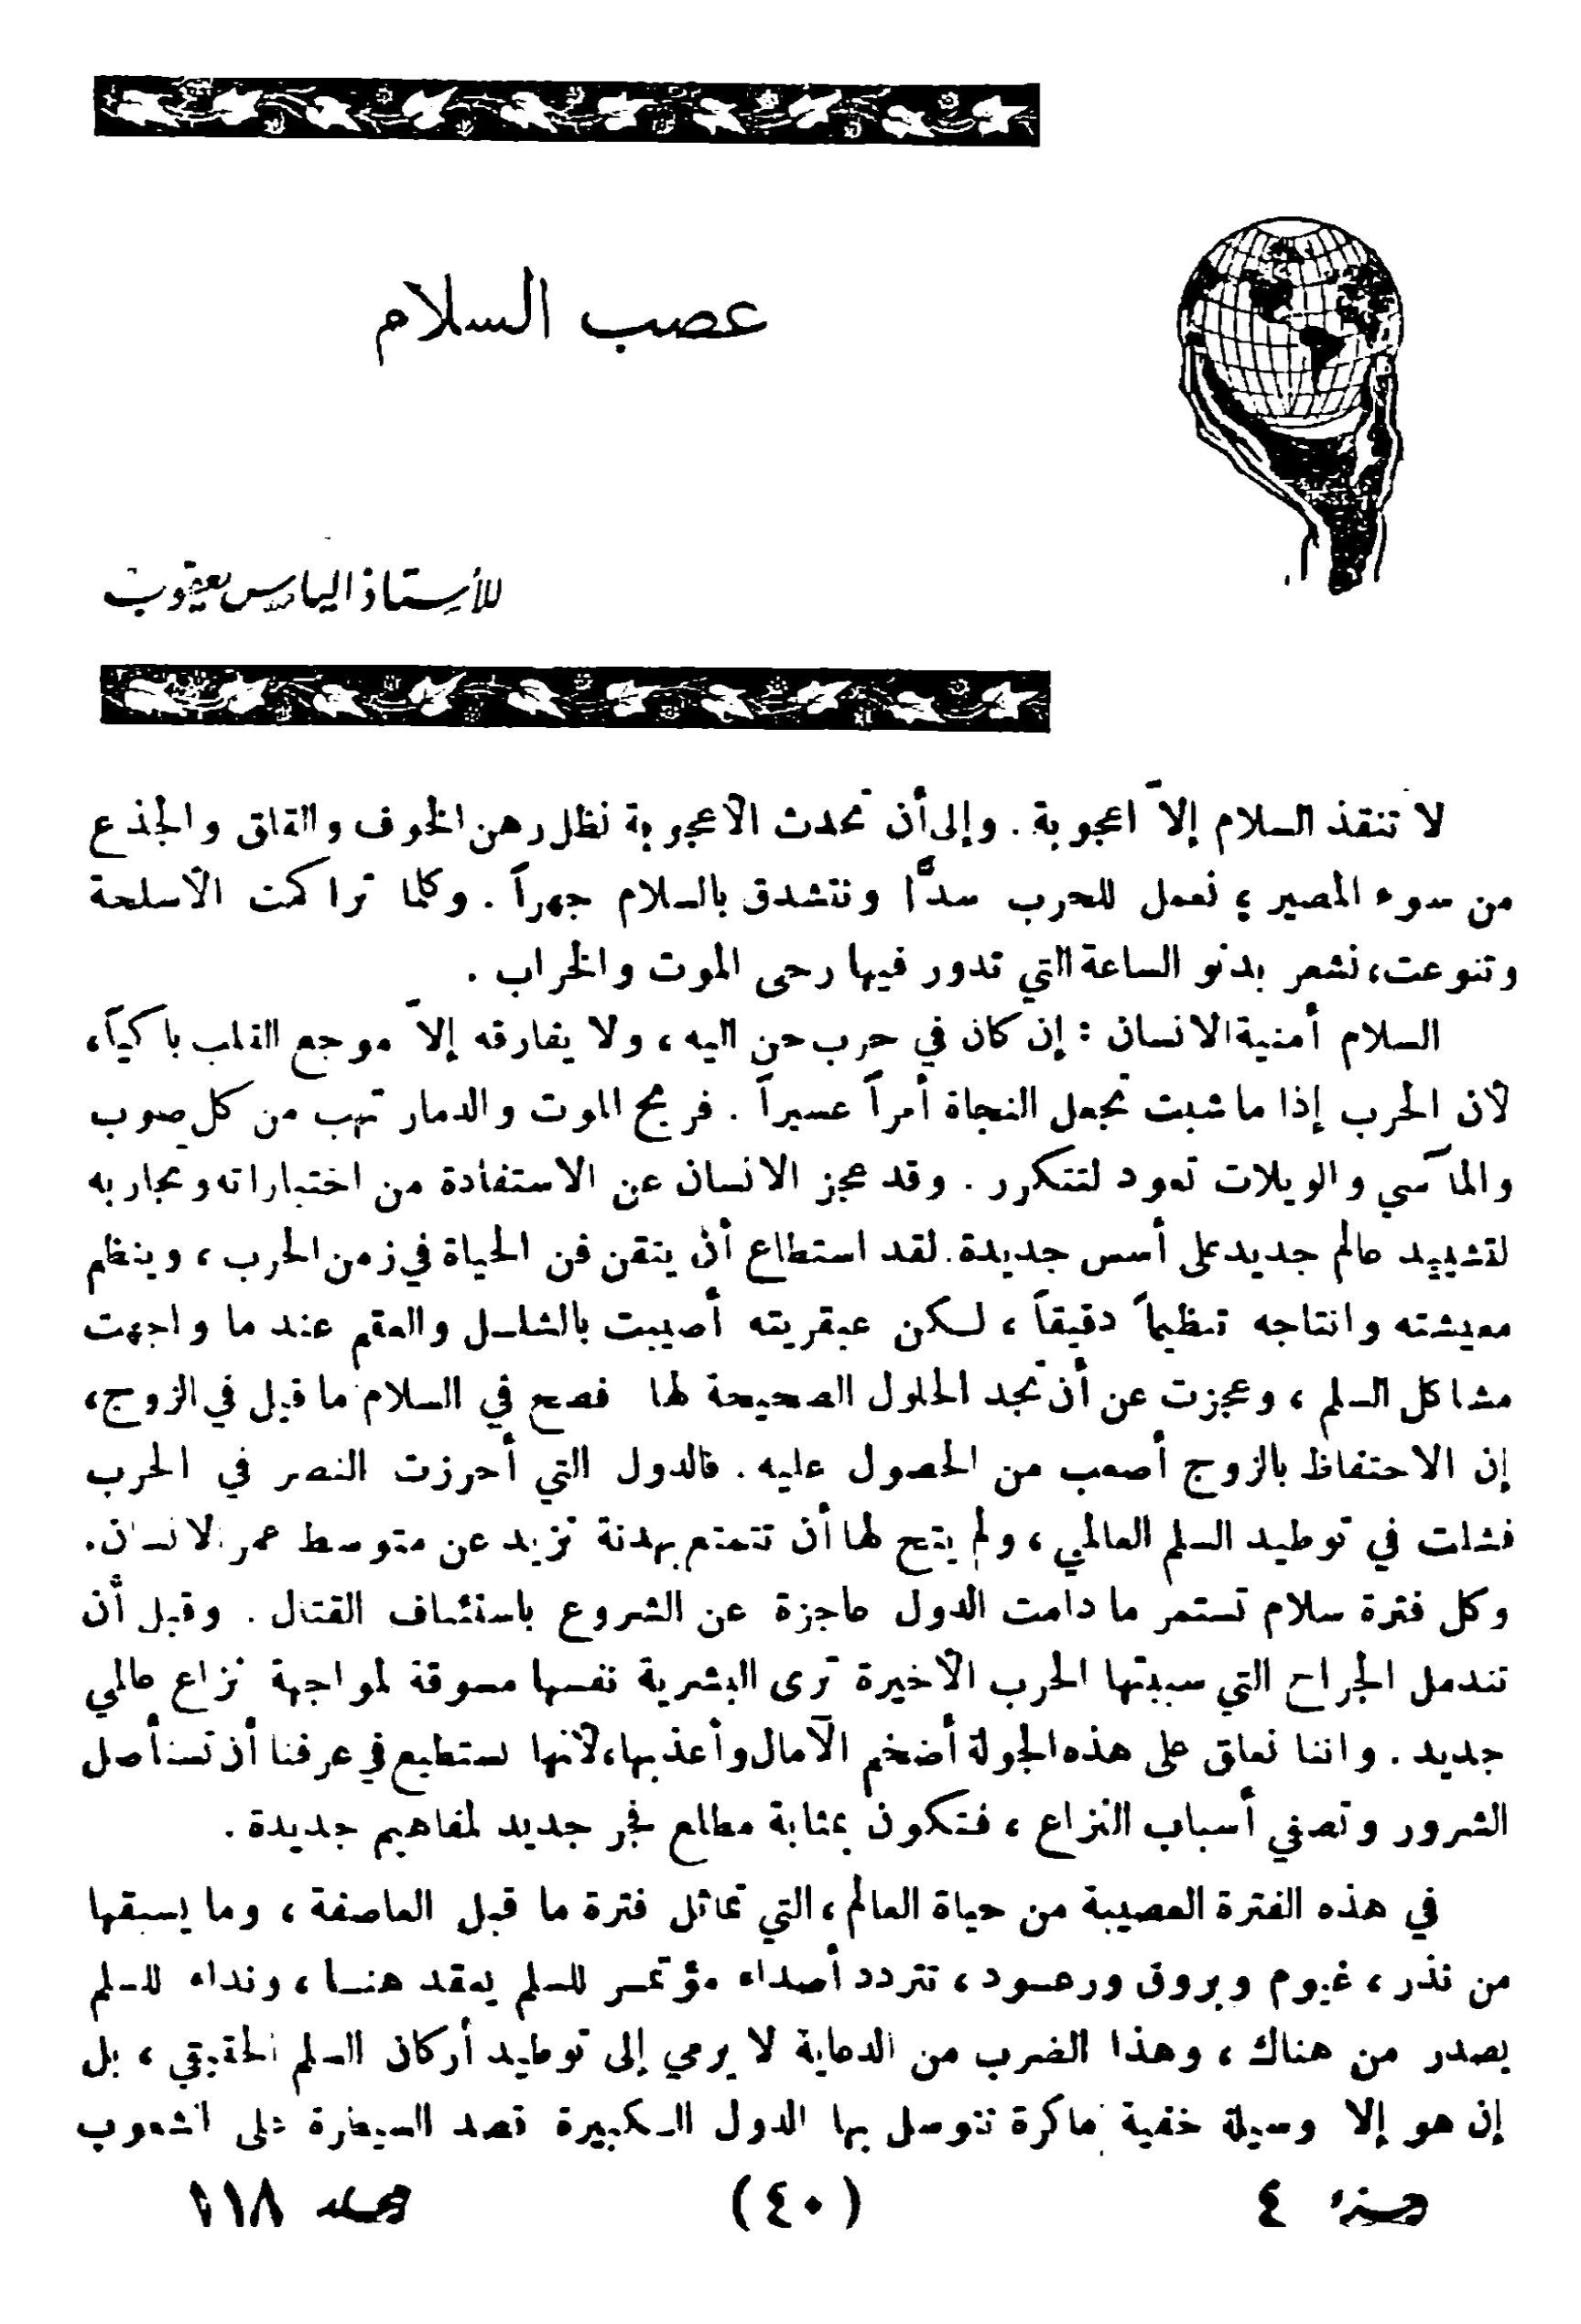 عصب السلام
للأستاذ الياس يعقوب
لا تنقذ السلام إلاّ اعجوبة . وإلى أن تحدث الاعجوبة نظل رهن الخوف والقلق والجذع
من سوء المصير ؛ نعمل للحرب سرًّا ونتشدق بالسلام جهراً . وكلما تراكمت الأسلحة
وتنوعت، نشعر بدنو الساعة التي تدور فيها رحى الموت والخراب .
السلام أمنية الانسان : إن كان في حرب حن اليه ، ولا يفارقه إلاّ موجع القلب باكياً،
لأن الحرب إذا ما شبت تجعل النجاة أمراً عسيراً . فريح الموت والدمار تهب من كل صوب
والمآسي والويلات تعود لتتكرر . وقد عجز الانسان عن الاستفادة من اختباراته وتجاربه
لتشييد عالم جديد على أسس جديدة . لقد استطاع أن يتقن فن الحياة في زمن الحرب ، وينظم
معيشته وانتاجه تنظيماً دقيقاً ، لـكن عبقريته أصيبت بالشلـل والعقم عند ما واجهت
مشاكل السلم ، وعجزت عن أن تجد الحلول الصحيحة لها فصح في السلام ما قيل في الزوج،
إن الاحتفاظ بالزوج أصعب من الحصول عليه . فالدول التي أحرزت النصر في الحرب
فشلت في توطيد السلم العالمي ، ولم يتح لها أن تتمتع بهدنة تزيد عن متوسط عمر الانسان .
وكل فترة سلام تستمر ما دامت الدول عاجزة عن الشروع باستئناف القتال . وقبل أن
تندمل الجراح التي سببتها الحرب الأخيرة ترى البشرية نفسها مسوقة لمواجهة نزاع عالمي
جديد . واننا نعلق على هذه الجولة أضخم الآمال وأعذبها، لأنها تستطيع في عرفنا أن تستأصل
الشرور وتصفي أسباب النزاع ، فتكون بمثابة مطلع فجر جديد لمفاهيم جديدة .
في هذه الفترة العصيبة من حياة العالم ، التي تماثل فترة ما قبل العاصفة ، وما يسبقها
من نذر ، غيوم وبروق ورعـود ، تتردد أصداء مؤتمـر للسلم يعقد هنـا ، ونداء للسلم
يصدر من هناك ، وهذا الضرب من الدعاية لا يرمي إلى توطيد أركان السلم الحقيقي ، بل
إن هو إلا وسيلة خفية ماكرة تتوسل بها الدول الـكبيرة قصد السيطرة على الشعوب
جزء ٤ (٤٠) مجلد ١١٨